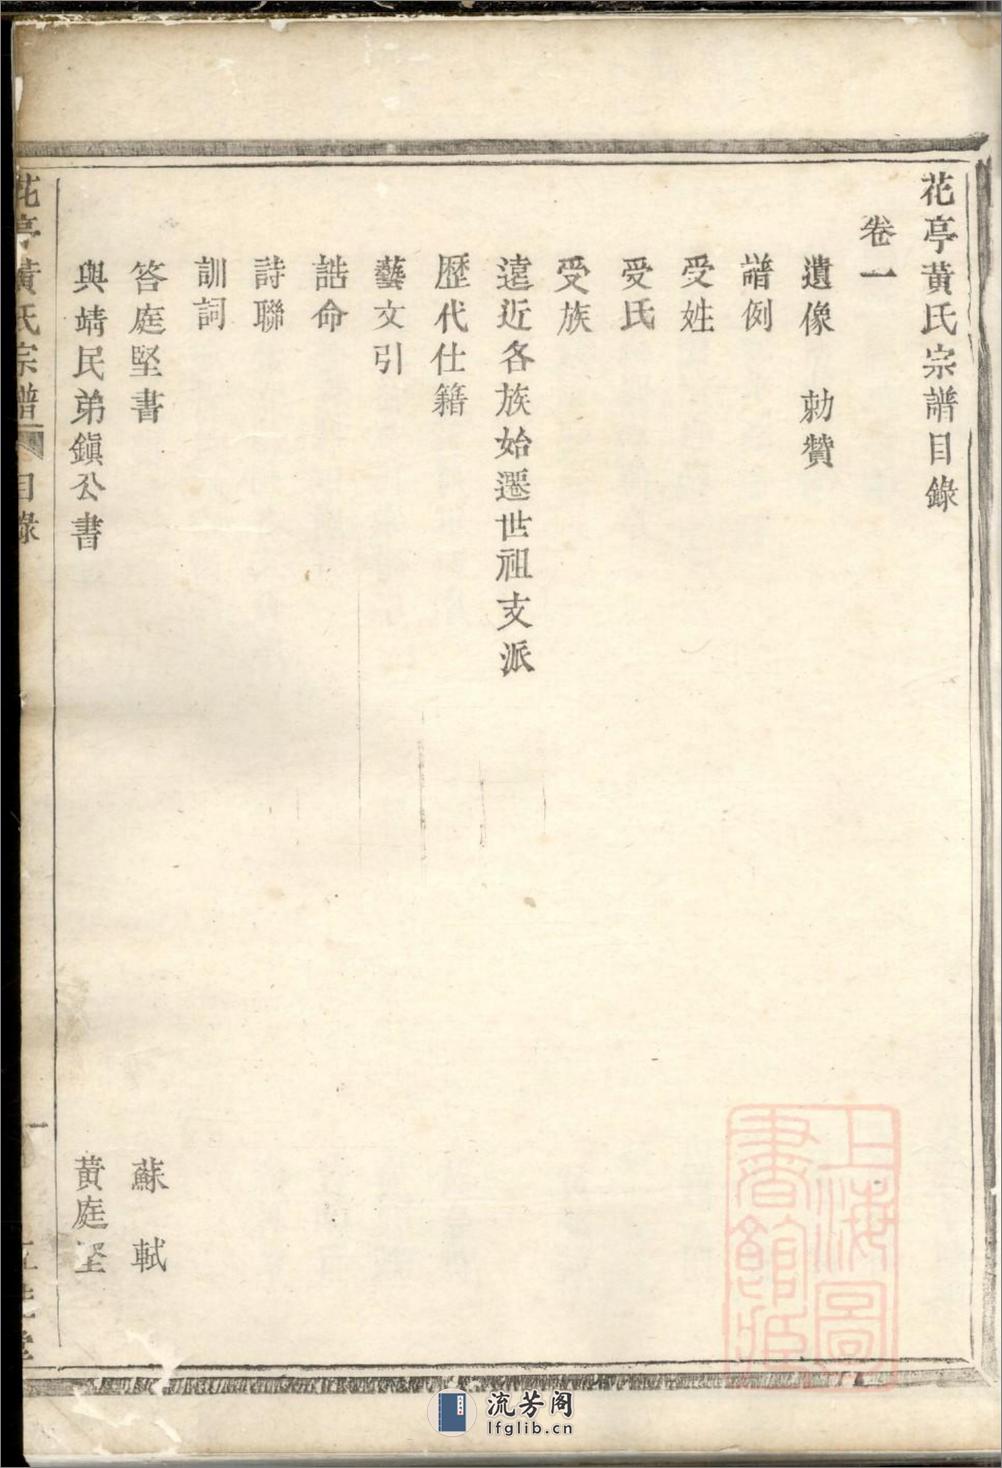 花亭黄氏宗譜目錄
卷一
遺像 勅贊
譜例
受姓
受氏
受族
遠近各族始遷世祖支派
歷代仕籍
藝文引
誥命
詩聯
訓詞
答庭堅書 蘇軾
與靖民弟鎭公書 黄庭堅
花亭黄氏宗譜 目錄 一
上海圖書館藏
流芳阁
lfglib.cn